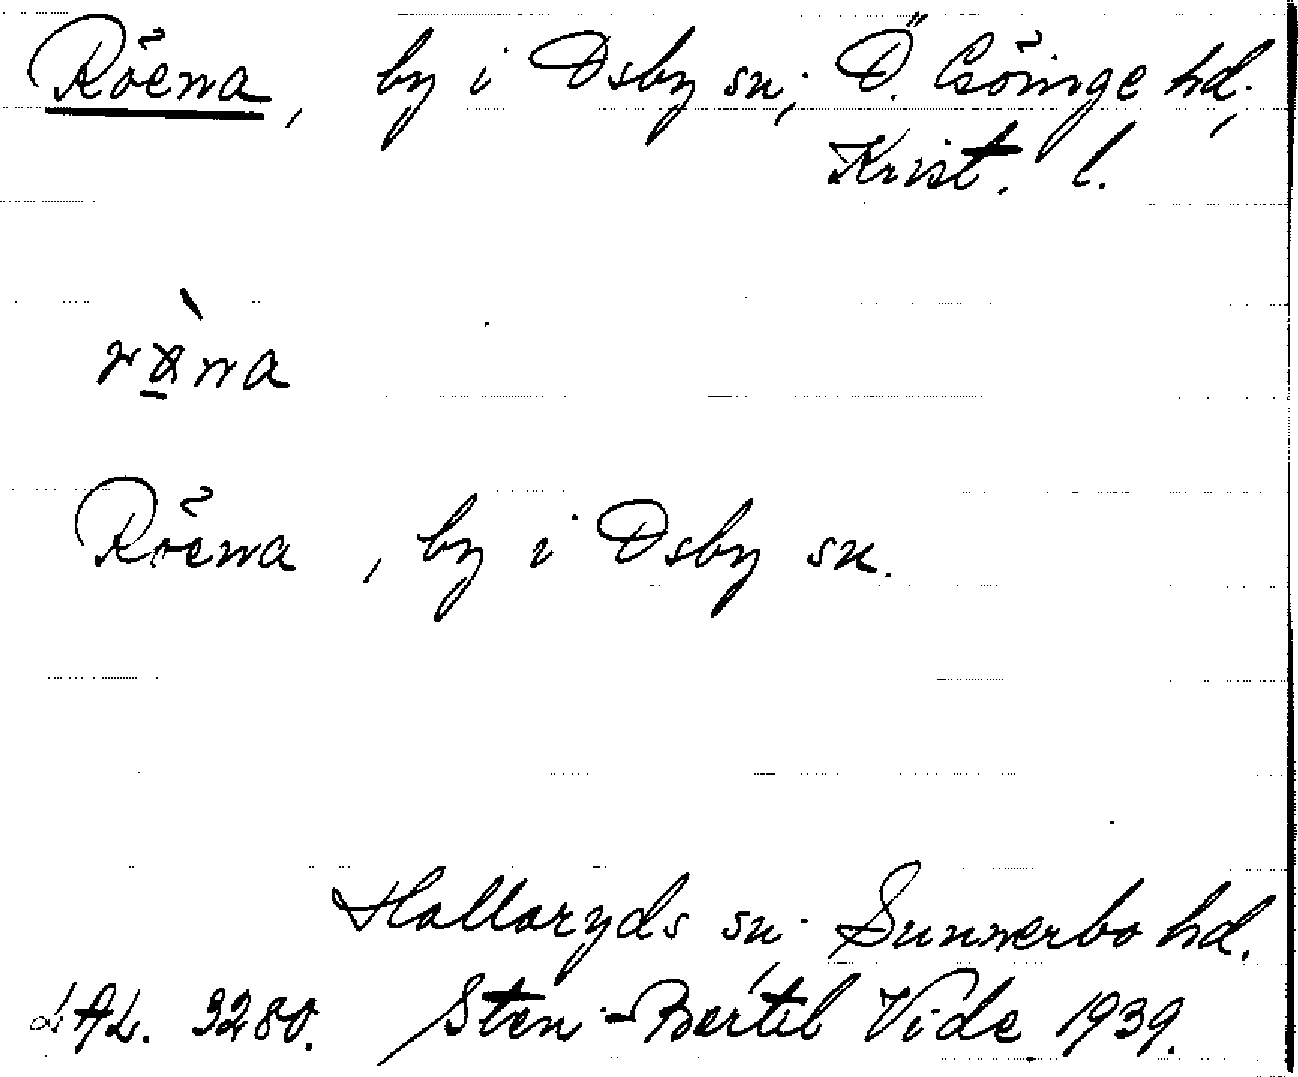 Röena, by i Osby sn, Ö. Göinge hd,
Krist. l.
Röena, by i Osby sn.
Hallaryds sn, Sunnerbo hd.
LAL. 3280. Sten-Bertil Vide 1939.